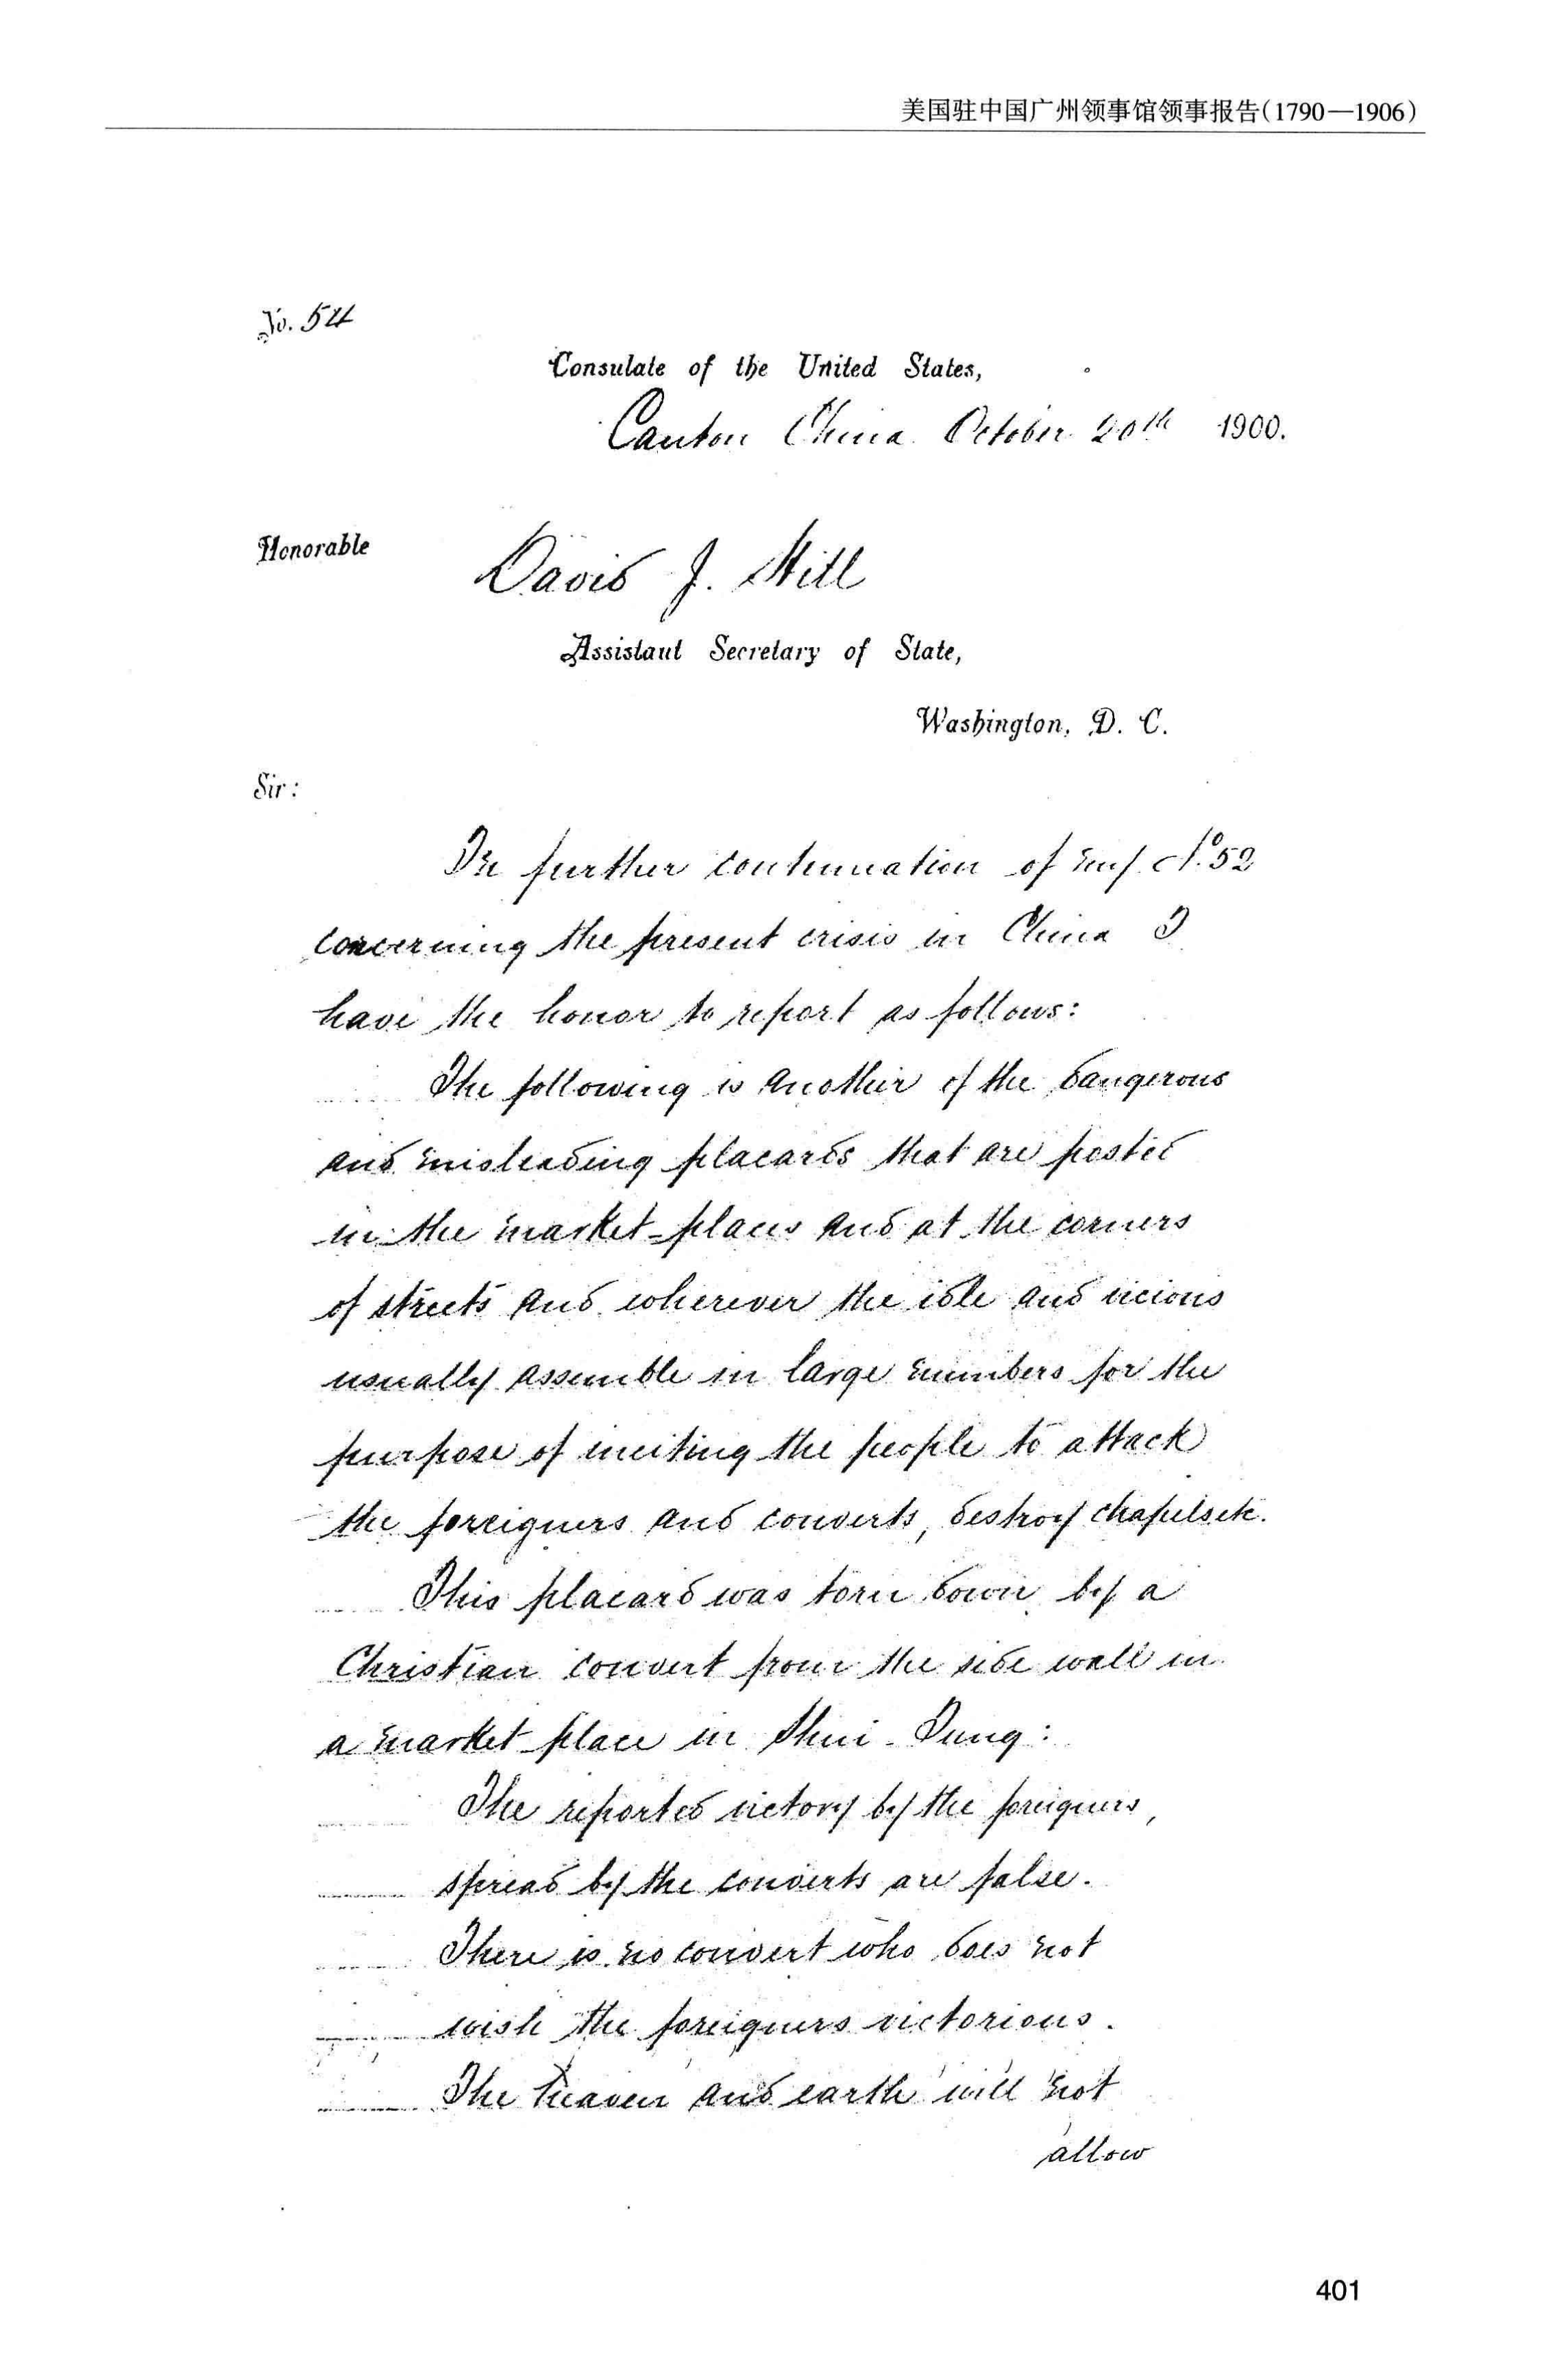 美国驻中国广州领事馆领事报告(1790—1906)
No. 54
Consulate of the United States,
Canton China. October 20th 1900.
Honorable
David J. Hill
Assistant Secretary of State,
Washington, D. C.
Sir:
In further continuation of my No. 52
concerning the present crisis in China I
have the honor to report as follows:
The following is another of the dangerous
and misleading placards that are posted
in the market-places and at the corners
of streets and wherever the idle and vicious
usually assemble in large numbers for the
purpose of inciting the people to attack
the foreigners and converts, destroy chapels etc.
This placard was torn down by a
Christian convert from the side wall in
a market place in Shui-Tung:
The reported victory by the foreigners,
spread by the converts are false.
There is no convert who does not
wish the foreigners victorious.
The heaven and earth will not
allow
401